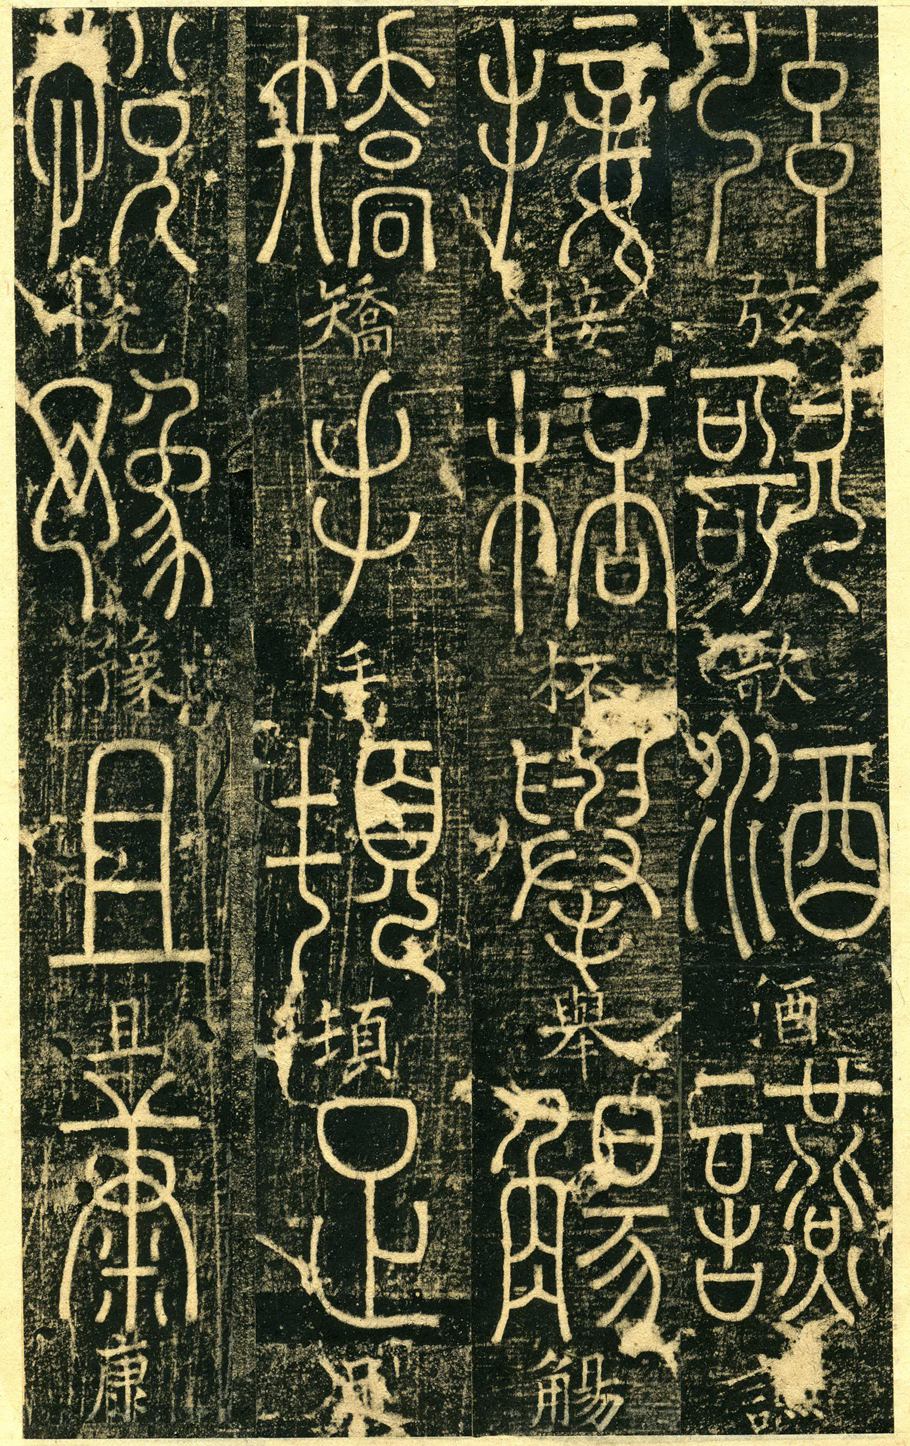 弦弦歌歌酒酒讌讌
接接桮杯舉舉觴觴
矯矯手手頓頓足
悅悅豫豫且且康康